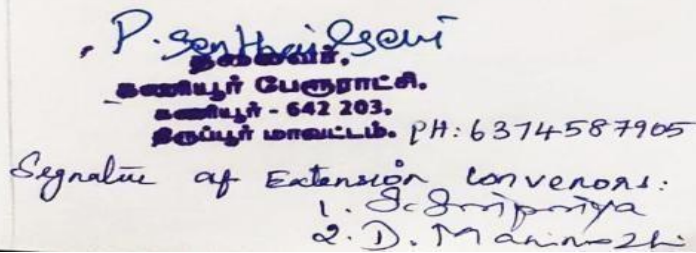 P. Senthamilselvi
தலைவர்,
கணியூர் பேரூராட்சி.
கணியூர் - 642 203.
திருப்பூர் மாவட்டம். PH: 6374587905
Segnature of Extension Convenors:
1. S. Sripriya
2. D. Manimozhi